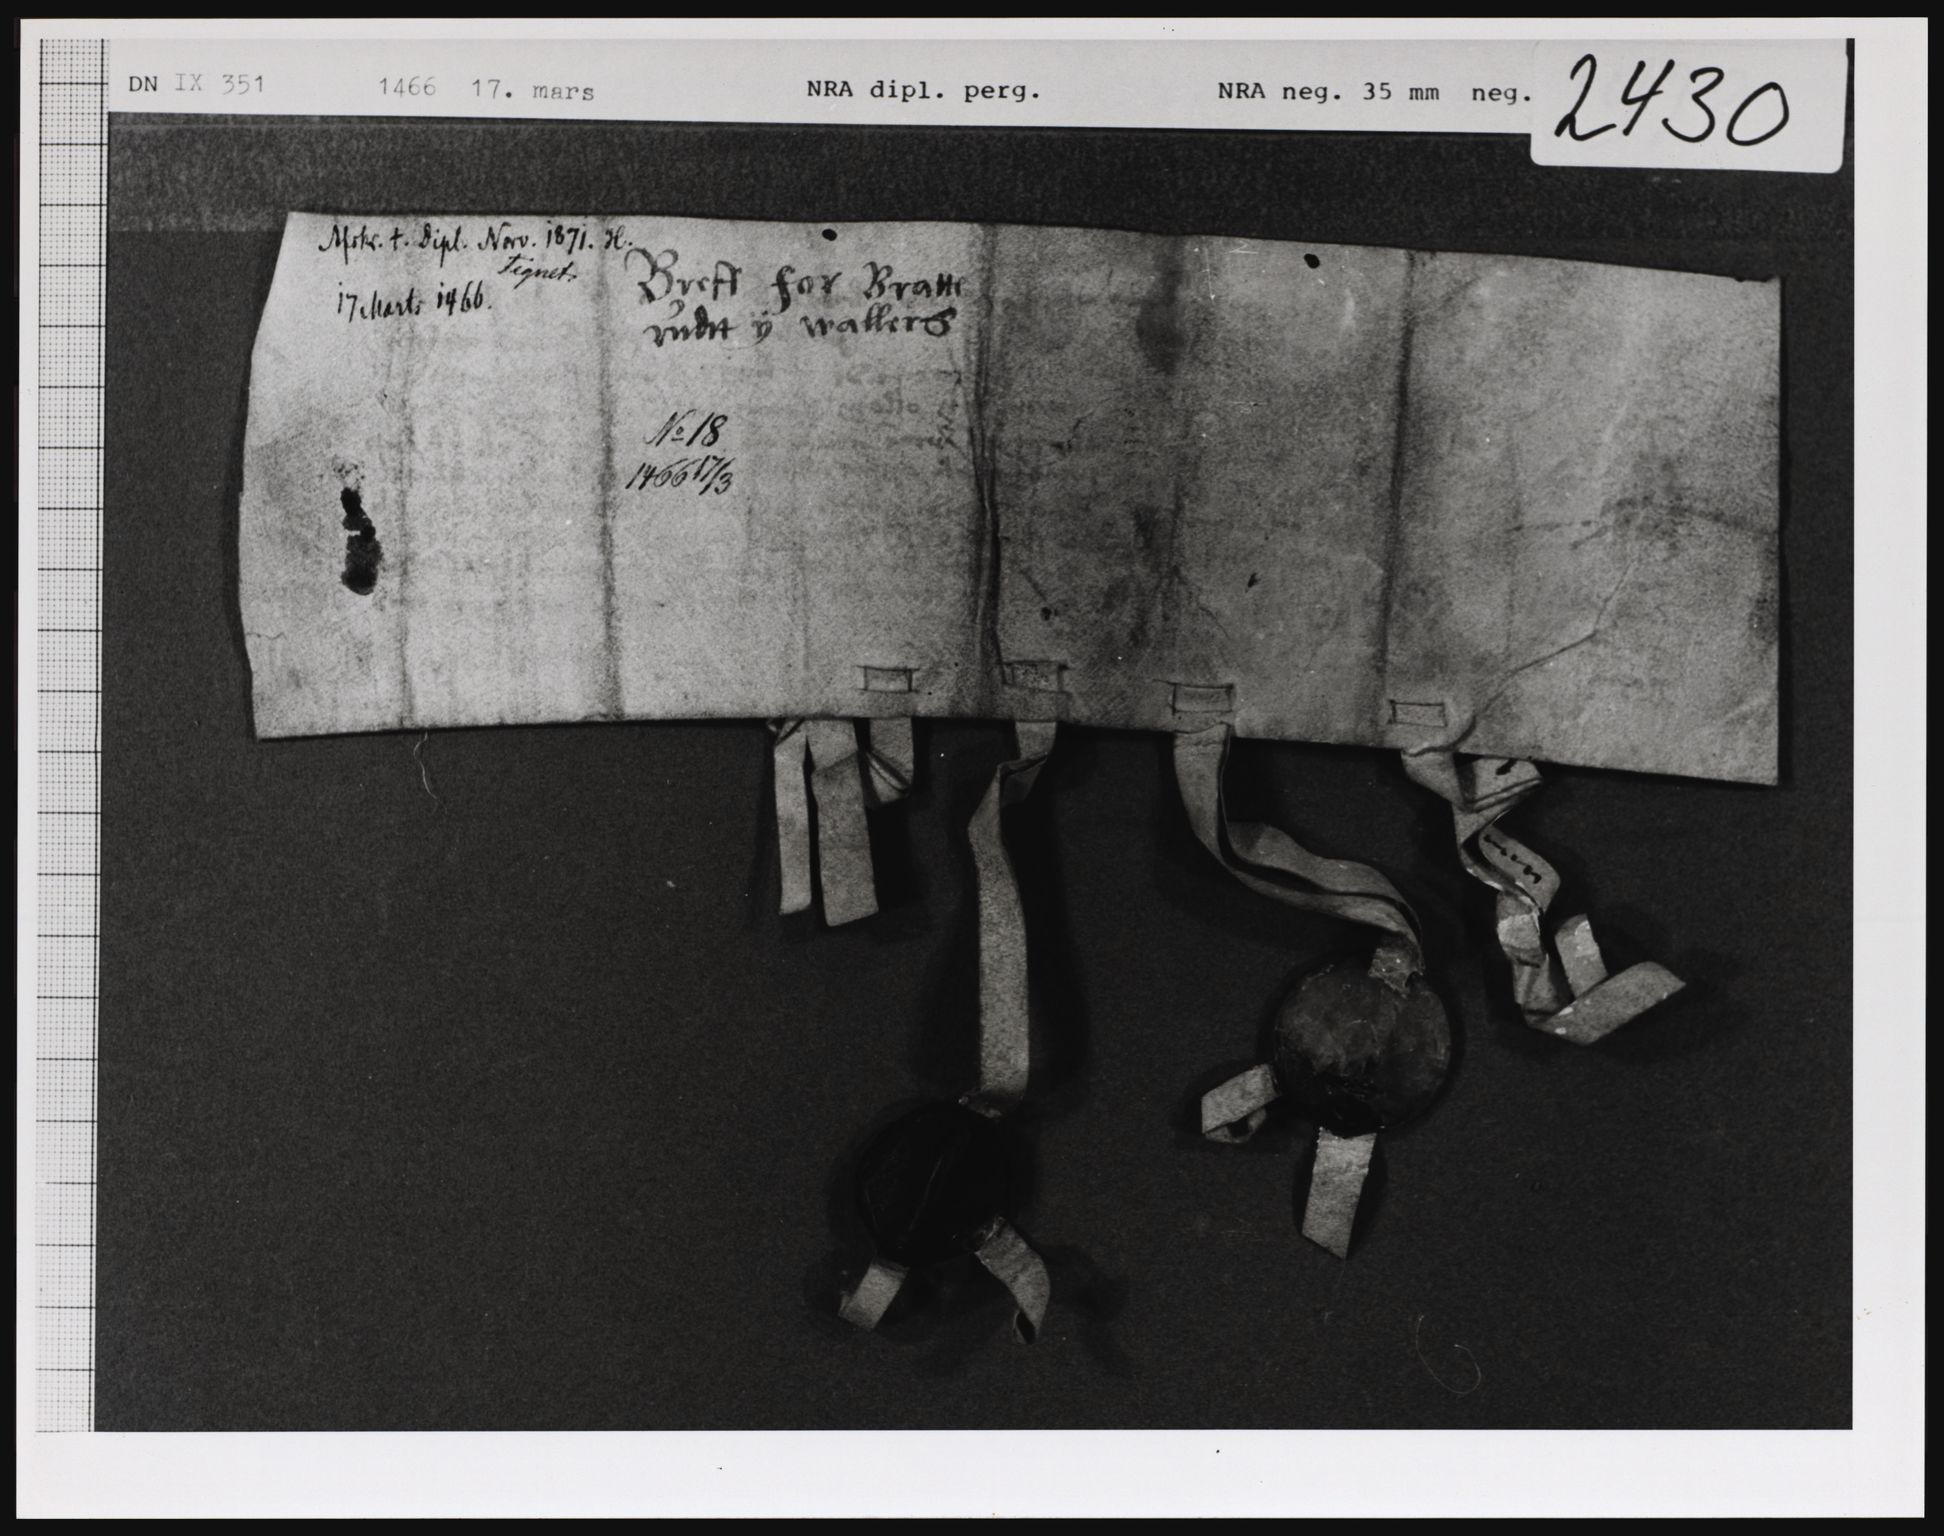 DN IX 351 1466 17. mars NRA dipl. perg. NRA neg. 35 mm neg. 2430
Afskr. t. Dipl. Norv. 1871. H.
Tegnet.
17 Marts 1466.
Breff for Bratte
rudtt ÿ wallers
No 18
1466 17/3